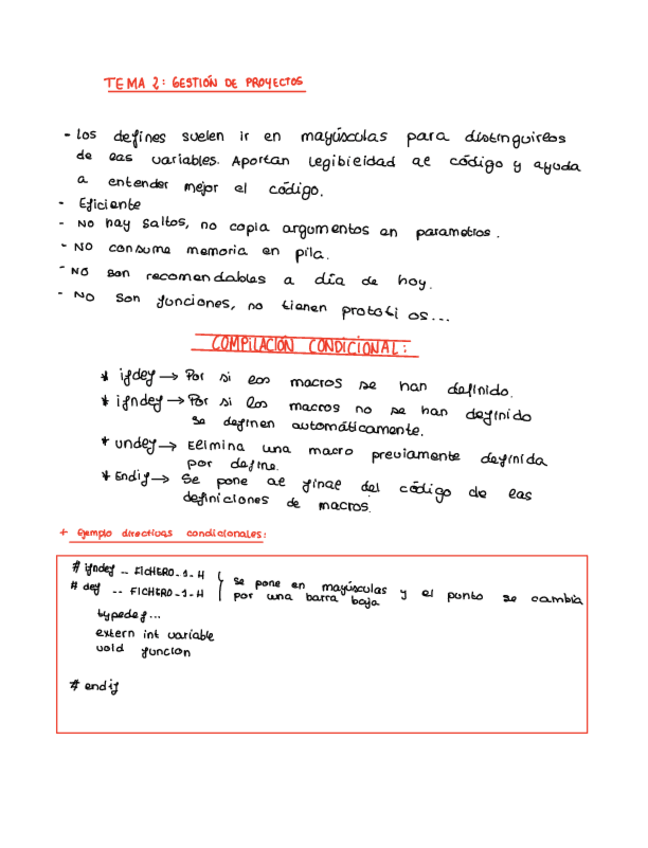 TEMA 2: GESTIÓN DE PROYECTOS
- Los defines suelen ir en mayúsculas para distinguirlos
de las variables. Aportan legibilidad al código y ayuda
a entender mejor el código.
- Eficiente
- No hay saltos, no copia argumentos en parametros.
- NO consume memoria en pila.
- NO son recomendables a día de hoy.
- NO son funciones, no tienen prototi os...
COMPILACIÓN CONDICIONAL:
* ifdef → Por si los macros se han definido.
* ifndef → Por si los macros no se han definido
se definen automáticamente.
* undef → Elimina una macro previamente definida
por define.
* Endif → Se pone al final del código de las
definiciones de macros.
+ Ejemplo directivas condicionales:
# ifndef __ FICHERO_1_H
# def __ FICHERO_1_H
se pone en mayúsculas y el punto se cambia
por una barra baja
typedef...
extern int variable
void funcion
# endif